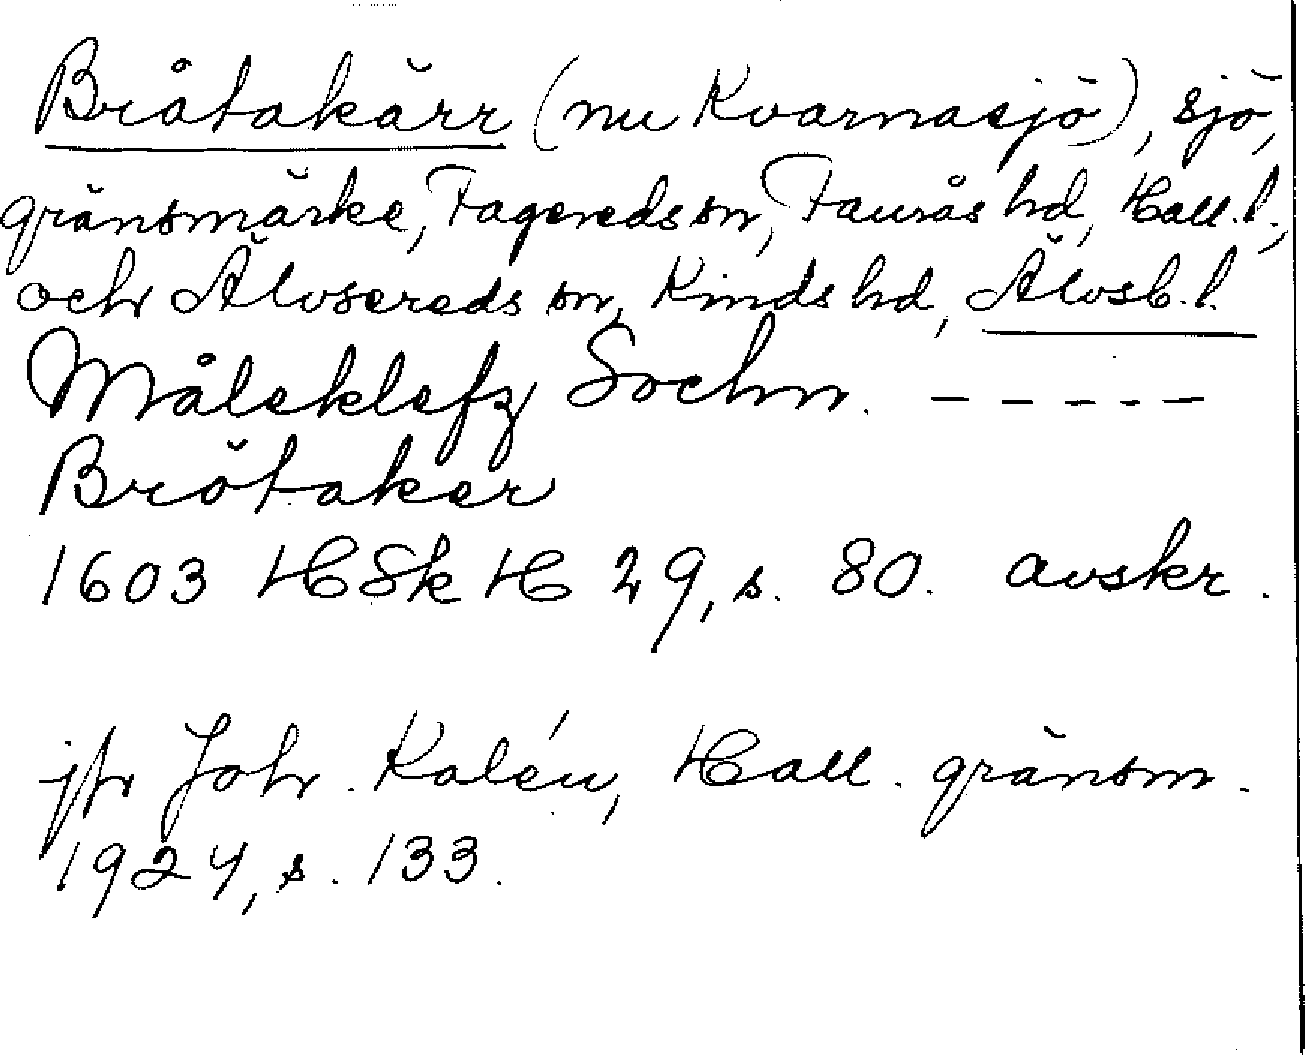 Bråtakärr (nu Kvarnasjö), sjö,
gränsmärke, Fagereds sn, Faurås hd, Hall. l.,
och Älvsereds sn, Kinds hd, Älvsb. l.
Måleklefz Sochn. - - - - -
Brötaker
1603 HSkH 29, s. 80. avskr.
jfr Joh. Kalén, Hall. gränsm.
1924, s. 133.